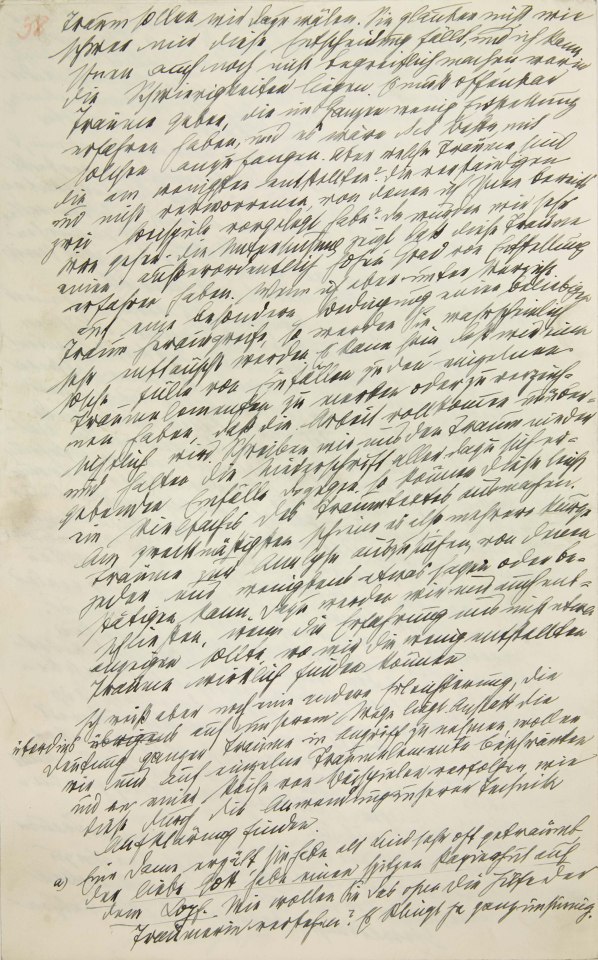 38
Traum sollen wir dazu wälen. Sie glauben nicht wie
schwer mir diese Entscheidung fällt, und ich kann
Ihnen auch noch nicht begreiflich machen worin
die Schwierigkeiten liegen. Es muß offenbar
Träume geben, die im Ganzen wenig Entstellung
erfahren haben, und es wäre das beste mit
solchen anzufangen. Aber welche Träume sind
die am wenigsten entstellten? Die verständigen
und nicht verworrenen, von denen ich Ihnen bereits
zwei Beispiele vorgelegt habe? Da würden wir sehr
irre gehen. Die Untersuchung zeigt daß diese Träume
einen außerordentlich hohen Grad von Entstellung
erfahren haben. Wenn ich aber unter Verzicht
auf eine besondere Bedingung einen beliebigen
Traum herausgreife, so werden Sie wahrscheinlich
sehr enttäuscht werden. Es kann sein daß wir eine
solche Fülle von Einfällen zu den einzelnen
Traumelementen zu merken oder zu verzeich-
nen haben, daß die Arbeit vollkommen unüber-
sichtlich wird. Schreiben wir uns den Traum nieder
und halten die Niederschrift aller dazu sich er-
gebenden Einfälle dagegen so können diese leicht
ein Vielfaches des Traumtextes ausmachen.
Am zweckmäßigsten schiene es also mehrere kurze
Träume zur Analyse auszusuchen, von denen
jeder uns wenigstens etwas sagen oder be-
stätigen kann. Dazu werden wir uns auch ent-
schließen, wenn die Erfahrung uns nicht etwa
anzeigen sollte, wo wir die wenig entstellten
Träume wirklich finden können
Ich weiß aber noch eine andere Erleichterung, die
überdies übrigens auf unserem Wege liegt. Anstatt die
Deutung ganzer Träume in Angriff zu nehmen wollen
wir uns auf einzelne Traumelemente beschränken
und an einer Reihe von Beispielen verfolgen wie
diese durch die Anwendung unserer Technik
Aufklärung finden.
a) Eine Dame erzält sie habe als Kind sehr oft geträumt
der liebe Gott habe einen spitzen Papierhut auf
dem Kopf. Wie wollen Sie das ohne die Hilfe der
Träumerin verstehen? Es klingt ja ganz unsinnig.